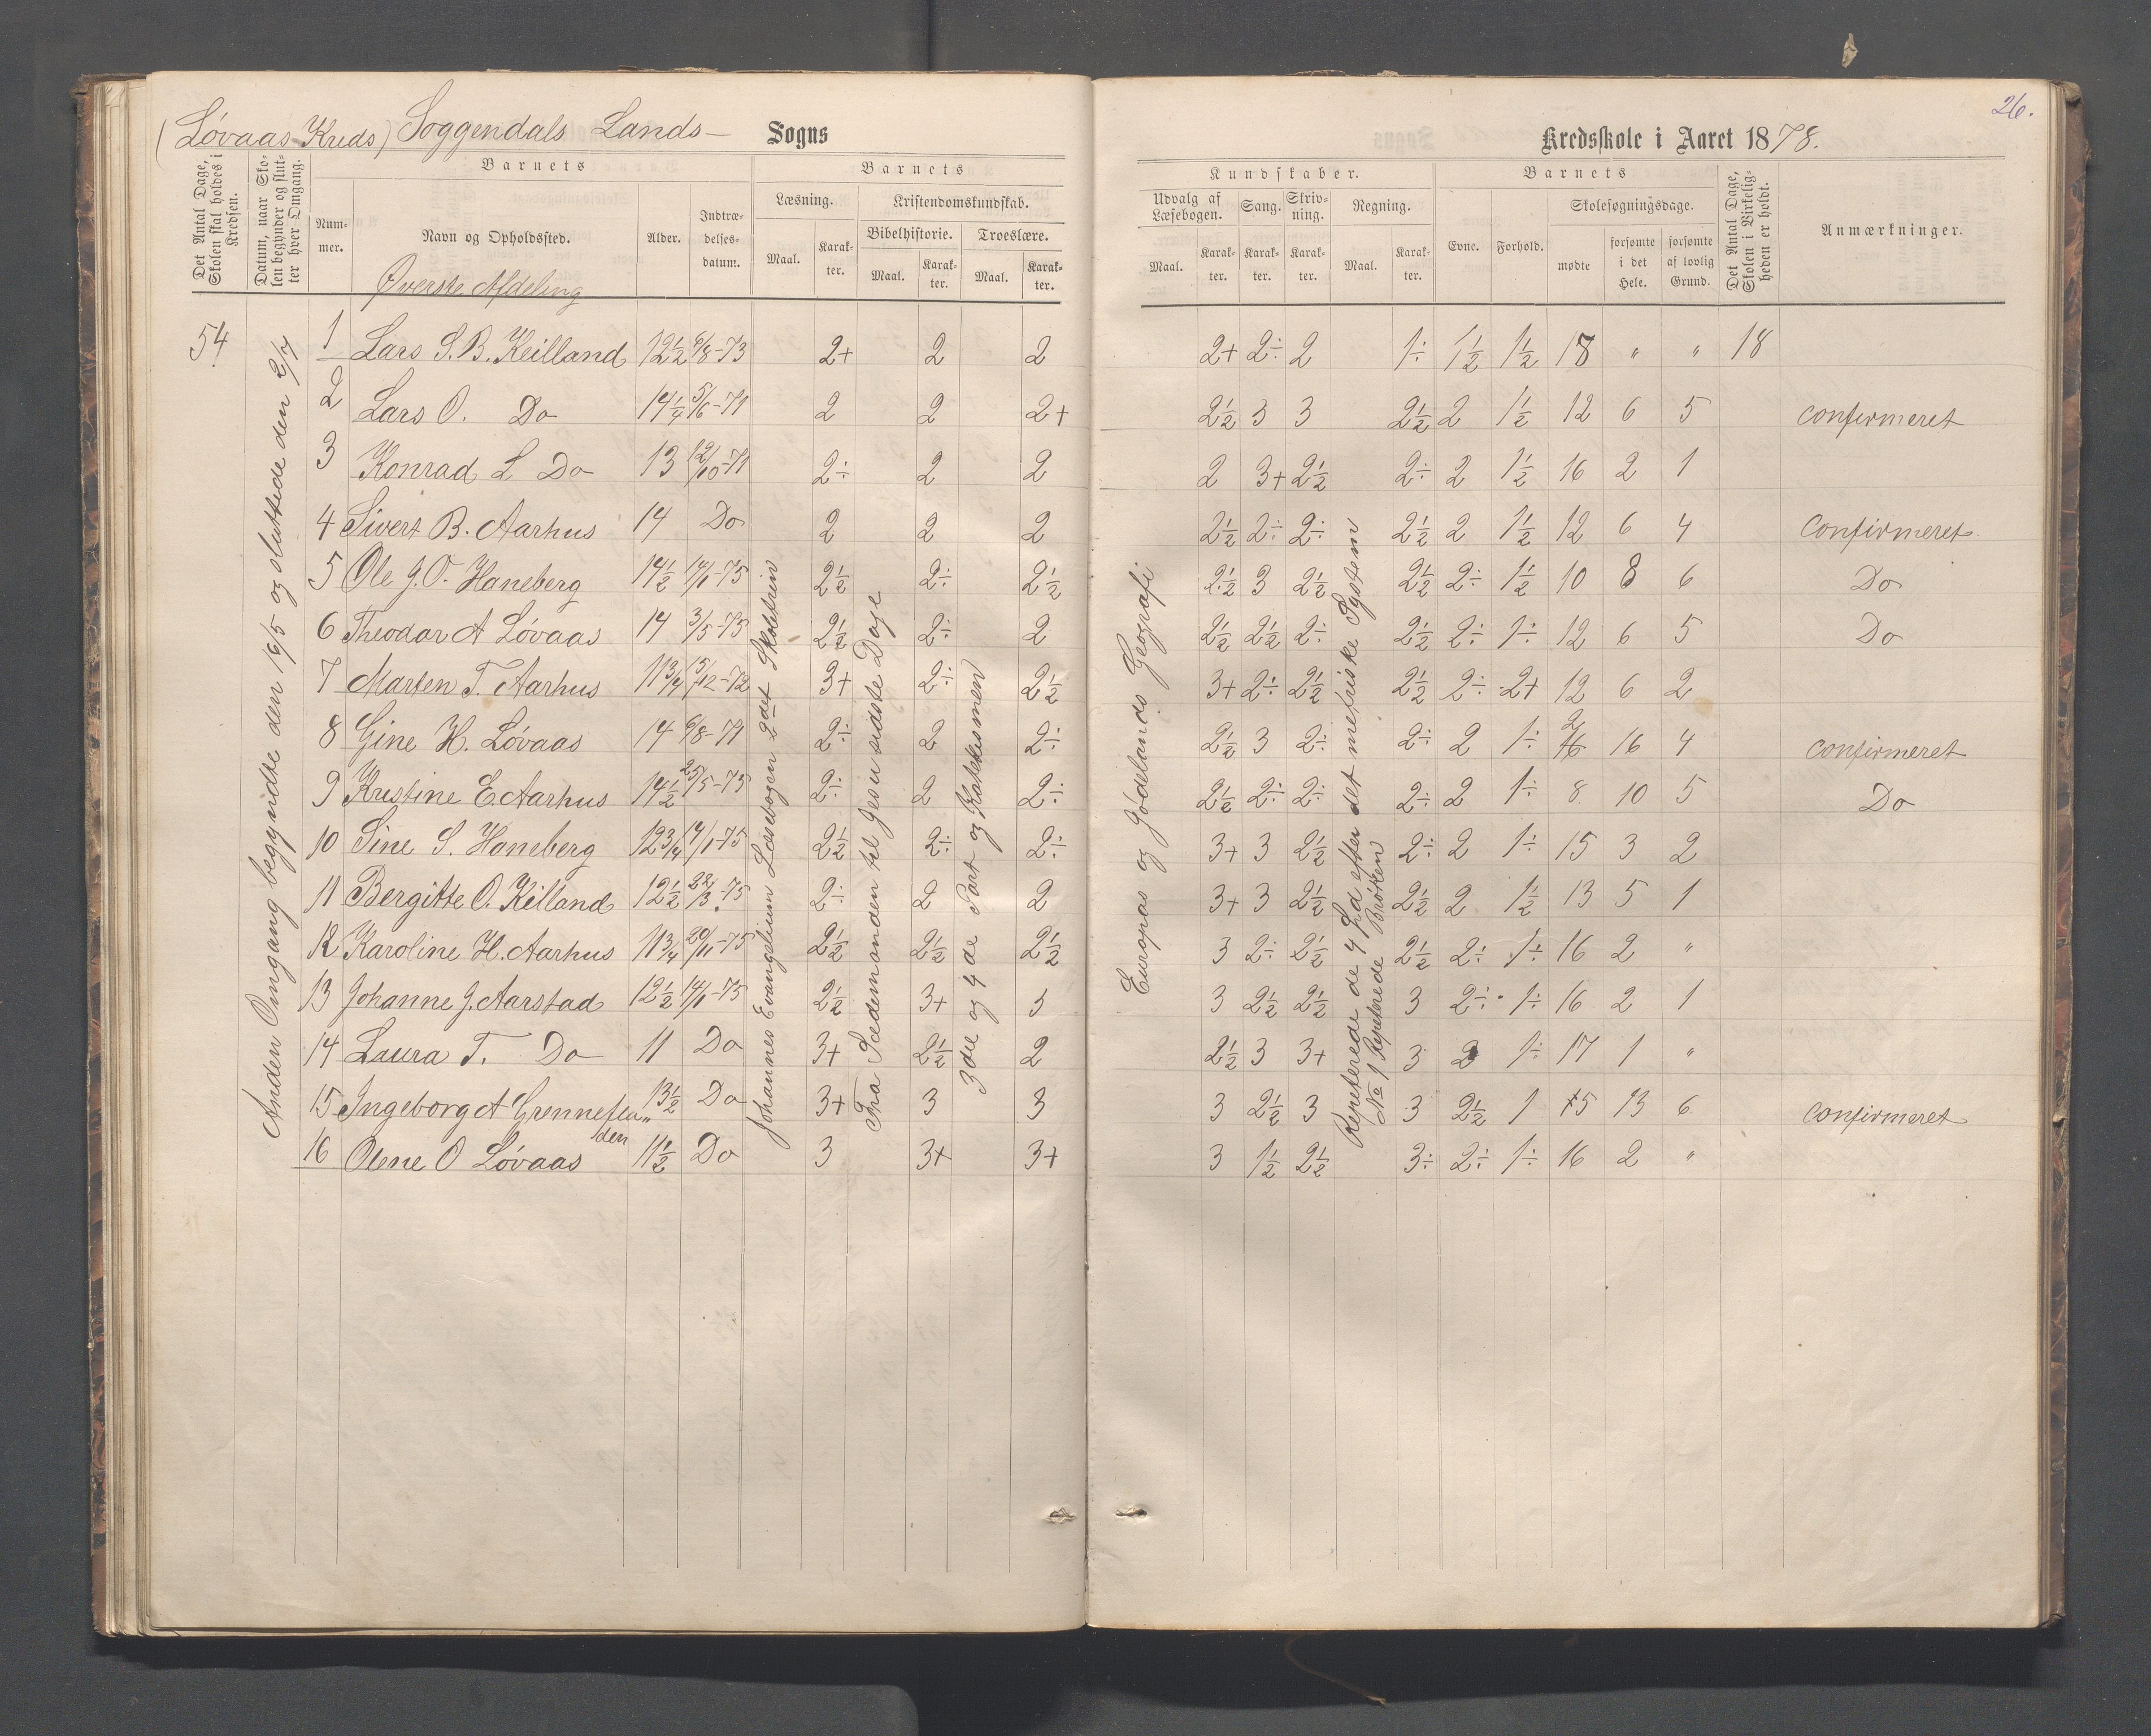 (Løvaas Kreds) Soggendals Lands- Sogns Kredsskole i Aaret 1878.
26.
Det Antal Dage, Skolen skal holdes i Kredsen.
Datum, naar Skolen begynder og slutter hver Omgang.
Barnets
Nummer.
Navn og Opholdssted.
Øverste Afdeling
Alder.
Indtrædelsesdatum.
Barnets
Læsning.
Maal.
Karakter.
Kristendomskundskab.
Bibelhistorie.
Maal.
Karakter.
Troeslære.
Maal.
Karakter.
Kundskaber.
Udvalg af Læsebogen.
Maal.
Karakter.
Sang.
Karakter.
Skrivning.
Karakter.
Regning.
Maal.
Karakter.
Barnets
Evne.
Forhold.
Skolesøgningsdage.
mødte
forsømte i det Hele.
forsømte af lovlig Grund.
Det Antal Dage, Skolen i Virkeligheden er holdt.
Anmærkninger.
54
Anden Omgang begyndte den 16/5 og sluttede den 2/7
Johannes Evangelium Læsebogen 2det Skoletrin
Fra Sædemanden til Jesu sidste Dage
3die og 4de Part og Katekismen
Europas og Jødelands Geografi
Repeterede de 4 Sp. efter det metriske System
No 1 Repeterede Brøken
1 Lars S.B. Keilland 12½ 6/8-73 2+ 2 2 2+ 2÷ 2 1÷ 1½ 1½ 18 " " 18
2 Lars O. Do 14¼ 5/6-71 2 2 2+ 2½ 3 3 2½ 2 1½ 12 6 5 confirmeret
3 Konrad L Do 13 12/10-71 2÷ 2 2 2 3+ 2½ 2÷ 2 1½ 16 2 1
4 Sivert B. Aarhus 14 Do 2 2 2 2½ 2÷ 2÷ 2½ 2 1½ 12 6 4 Confirmeret.
5 Ole J.O. Haneberg 14½ 14/1-75 2½ 2÷ 2½ 2½ 3 2½ 2½ 2÷ 1½ 10 8 6 Do
6 Theodor A Løvaas 14 3/5-75 2½ 2÷ 2 2½ 2½ 2÷ 2½ 2÷ 1÷ 12 6 5 Do
7 Marten T. Aarhus 11¾ 15/12-72 3+ 2÷ 2½ 3+ 2÷ 2½ 2½ 2÷ 2+ 12 6 2
8 Gine H. Løvaas 14 6/8-71 2÷ 2 2÷ 2½ 3 2÷ 2÷ 2 1÷ 2 16 4 confirmeret
9 Kristine E Aarhus 14½ 25/5-75 2÷ 2 2÷ 2½ 2÷ 2÷ 2÷ 2 1÷ 8 10 5 Do
10 Sine S. Haneberg 12¾ 14/1-75 2½ 2÷ 2÷ 3+ 3 2½ 2÷ 2 1÷ 15 3 2
11 Bergitte O. Keilland 12½ 22/3-75 2÷ 2 2 3+ 3 2½ 2½ 2 1½ 13 5 1
12 Karoline H. Aarhus 11¾ 20/11-75 2½ 2½ 2½ 3 2÷ 2½ 2½ 2÷ 1÷ 16 2 "
13 Johanne J. Aarstad 12½ 14/1-75 2½ 3+ 3 3 2½ 2½ 3 2÷ 1÷ 16 2 1
14 Laura T. Do 11 Do 3+ 2½ 2 2½ 3 3+ 3 2 1÷ 17 1 "
15 Ingeborg A Grønneflaaden 13½ Do 3+ 3 3 3 2½ 3 3 2½ 1 5 13 6 confirmeret
16 Olene O Løvaas 11½ Do 3 3+ 3+ 3 1½ 2½ 3÷ 2÷ 1÷ 16 2 "